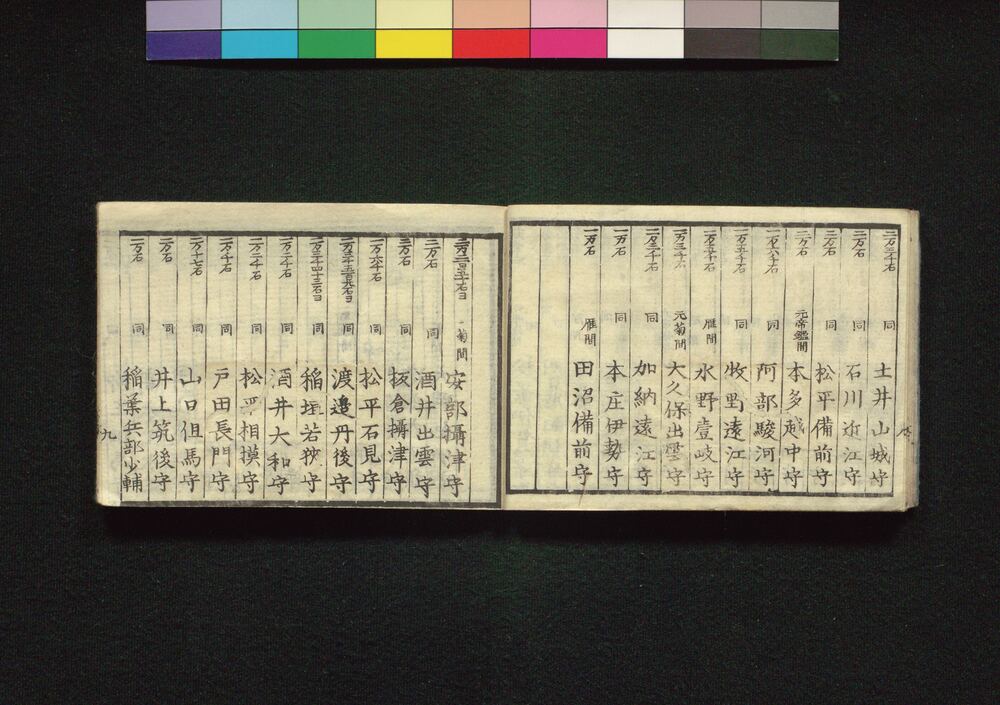 二万三千石 同 土井山城守
二万石 同 石川近江守
二万石 同 松平備前守
二万石 元帝鑑間 本多越中守
一万六千石 同 阿部駿河守
一万五千石 同 牧野遠江守
一万五千石 雁間 水野壹岐守
一万三千石 元菊間 大久保出雲守
一万三千石 同 加納遠江守
一万石 同 本庄伊勢守
一万石 雁間 田沼備前守
二万二百五十石ヨ 菊間 安部攝津守
二万石 同 酒井出雲守
三万石 同 板倉攝津守
一万六千石 同 松平石見守
一万三千五百九石ヨ 同 渡邉丹後守
一万三千四十三石ヨ 同 稲垣若狹守
一万二千石 同 酒井大和守
一万二千石 同 松平相摸守
一万千石 同 戸田長門守
一万十七石 同 山口但馬守
一万石 同 井上筑後守
一万石 同 稲葉兵部少輔
九